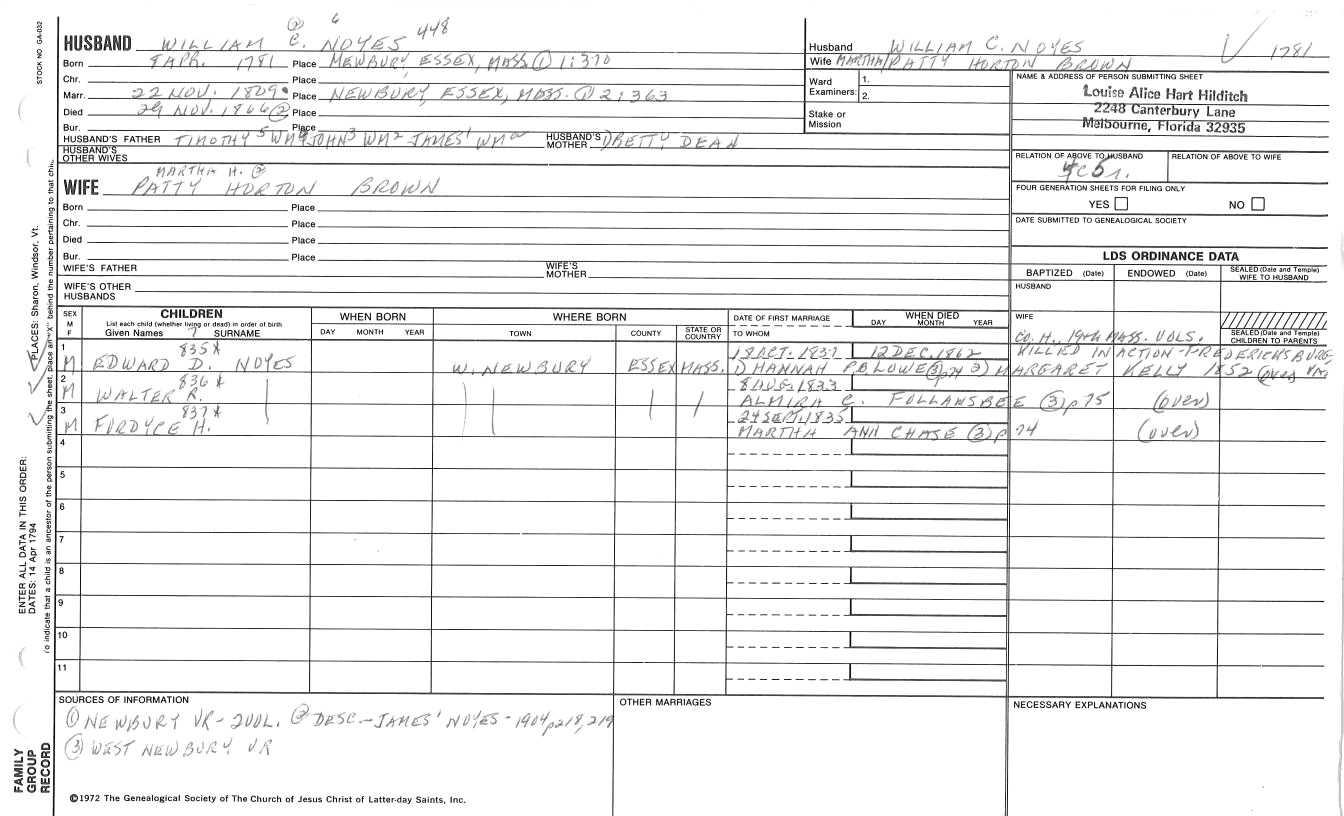 ② 6
HUSBAND WILLIAM C. NOYES 448
Born 8 APR. 1781 Place NEWBURY, ESSEX, MASS ① 1:370
Chr. Place
Marr. 22 NOV. 1809 Place NEWBURY, ESSEX, MASS. ① 2:363
Died 29 NOV. 1866 ② Place
Bur. Place
HUSBAND'S FATHER TIMOTHY⁵ WM⁴ JOHN³ WM² JAMES¹ WM HUSBAND'S MOTHER BETTY DEAN
HUSBAND'S OTHER WIVES
MARTHA H. ②
WIFE PATTY HORTON BROWN
Born Place
Chr. Place
Died Place
Bur. Place
WIFE'S FATHER WIFE'S MOTHER
WIFE'S OTHER HUSBANDS
Husband WILLIAM C. NOYES 1781
Wife MARTHA/PATTY HORTON BROWN
Ward Examiners: 1.
2.
Stake or Mission
NAME & ADDRESS OF PERSON SUBMITTING SHEET
Louise Alice Hart Hilditch
2248 Canterbury Lane
Melbourne, Florida 32935
RELATION OF ABOVE TO HUSBAND RELATION OF ABOVE TO WIFE
FOUR GENERATION SHEETS FOR FILING ONLY
YES NO
DATE SUBMITTED TO GENEALOGICAL SOCIETY
LDS ORDINANCE DATA
BAPTIZED (Date) ENDOWED (Date) SEALED (Date and Temple) WIFE TO HUSBAND
HUSBAND
WIFE
SEALED (Date and Temple) CHILDREN TO PARENTS
SEX M F CHILDREN WHEN BORN WHERE BORN DATE OF FIRST MARRIAGE WHEN DIED
List each child (whether living or dead) in order of birth
Given Names 7 SURNAME DAY MONTH YEAR TOWN COUNTY STATE OR COUNTRY TO WHOM DAY MONTH YEAR
CO. H., 19th MASS. VOLS.
1 835* 18 OCT. 1837 12 DEC. 1862 KILLED IN ACTION - FREDERICKSBURG
M EDWARD D. NOYES W. NEWBURY ESSEX MASS. ① HANNAH P. LOWE ③ p74 ② MARGARET KELLY 1852 (over) VA
2 836* 8 AUG. 1833
M WALTER R. ALMIRA C. FOLLANSBEE ③ p75 (over)
3 837* 24 SEPT. 1835
M FORDYCE H. MARTHA ANN CHASE ③ p74 (over)
4
5
6
7
8
9
10
11
SOURCES OF INFORMATION
① NEWBURY VR - 2 VOL. ② DESC. - JAMES¹ NOYES - 1904 p218, 219
③ WEST NEWBURY VR
OTHER MARRIAGES
NECESSARY EXPLANATIONS
©1972 The Genealogical Society of The Church of Jesus Christ of Latter-day Saints, Inc.
STOCK NO GA-032
PLACES: Sharon, Windsor, Vt.
To indicate that a child is an ancestor of the person submitting the sheet, place an "X" behind the number pertaining to that child.
ENTER ALL DATA IN THIS ORDER:
DATES: 14 Apr 1794
FAMILY GROUP RECORD